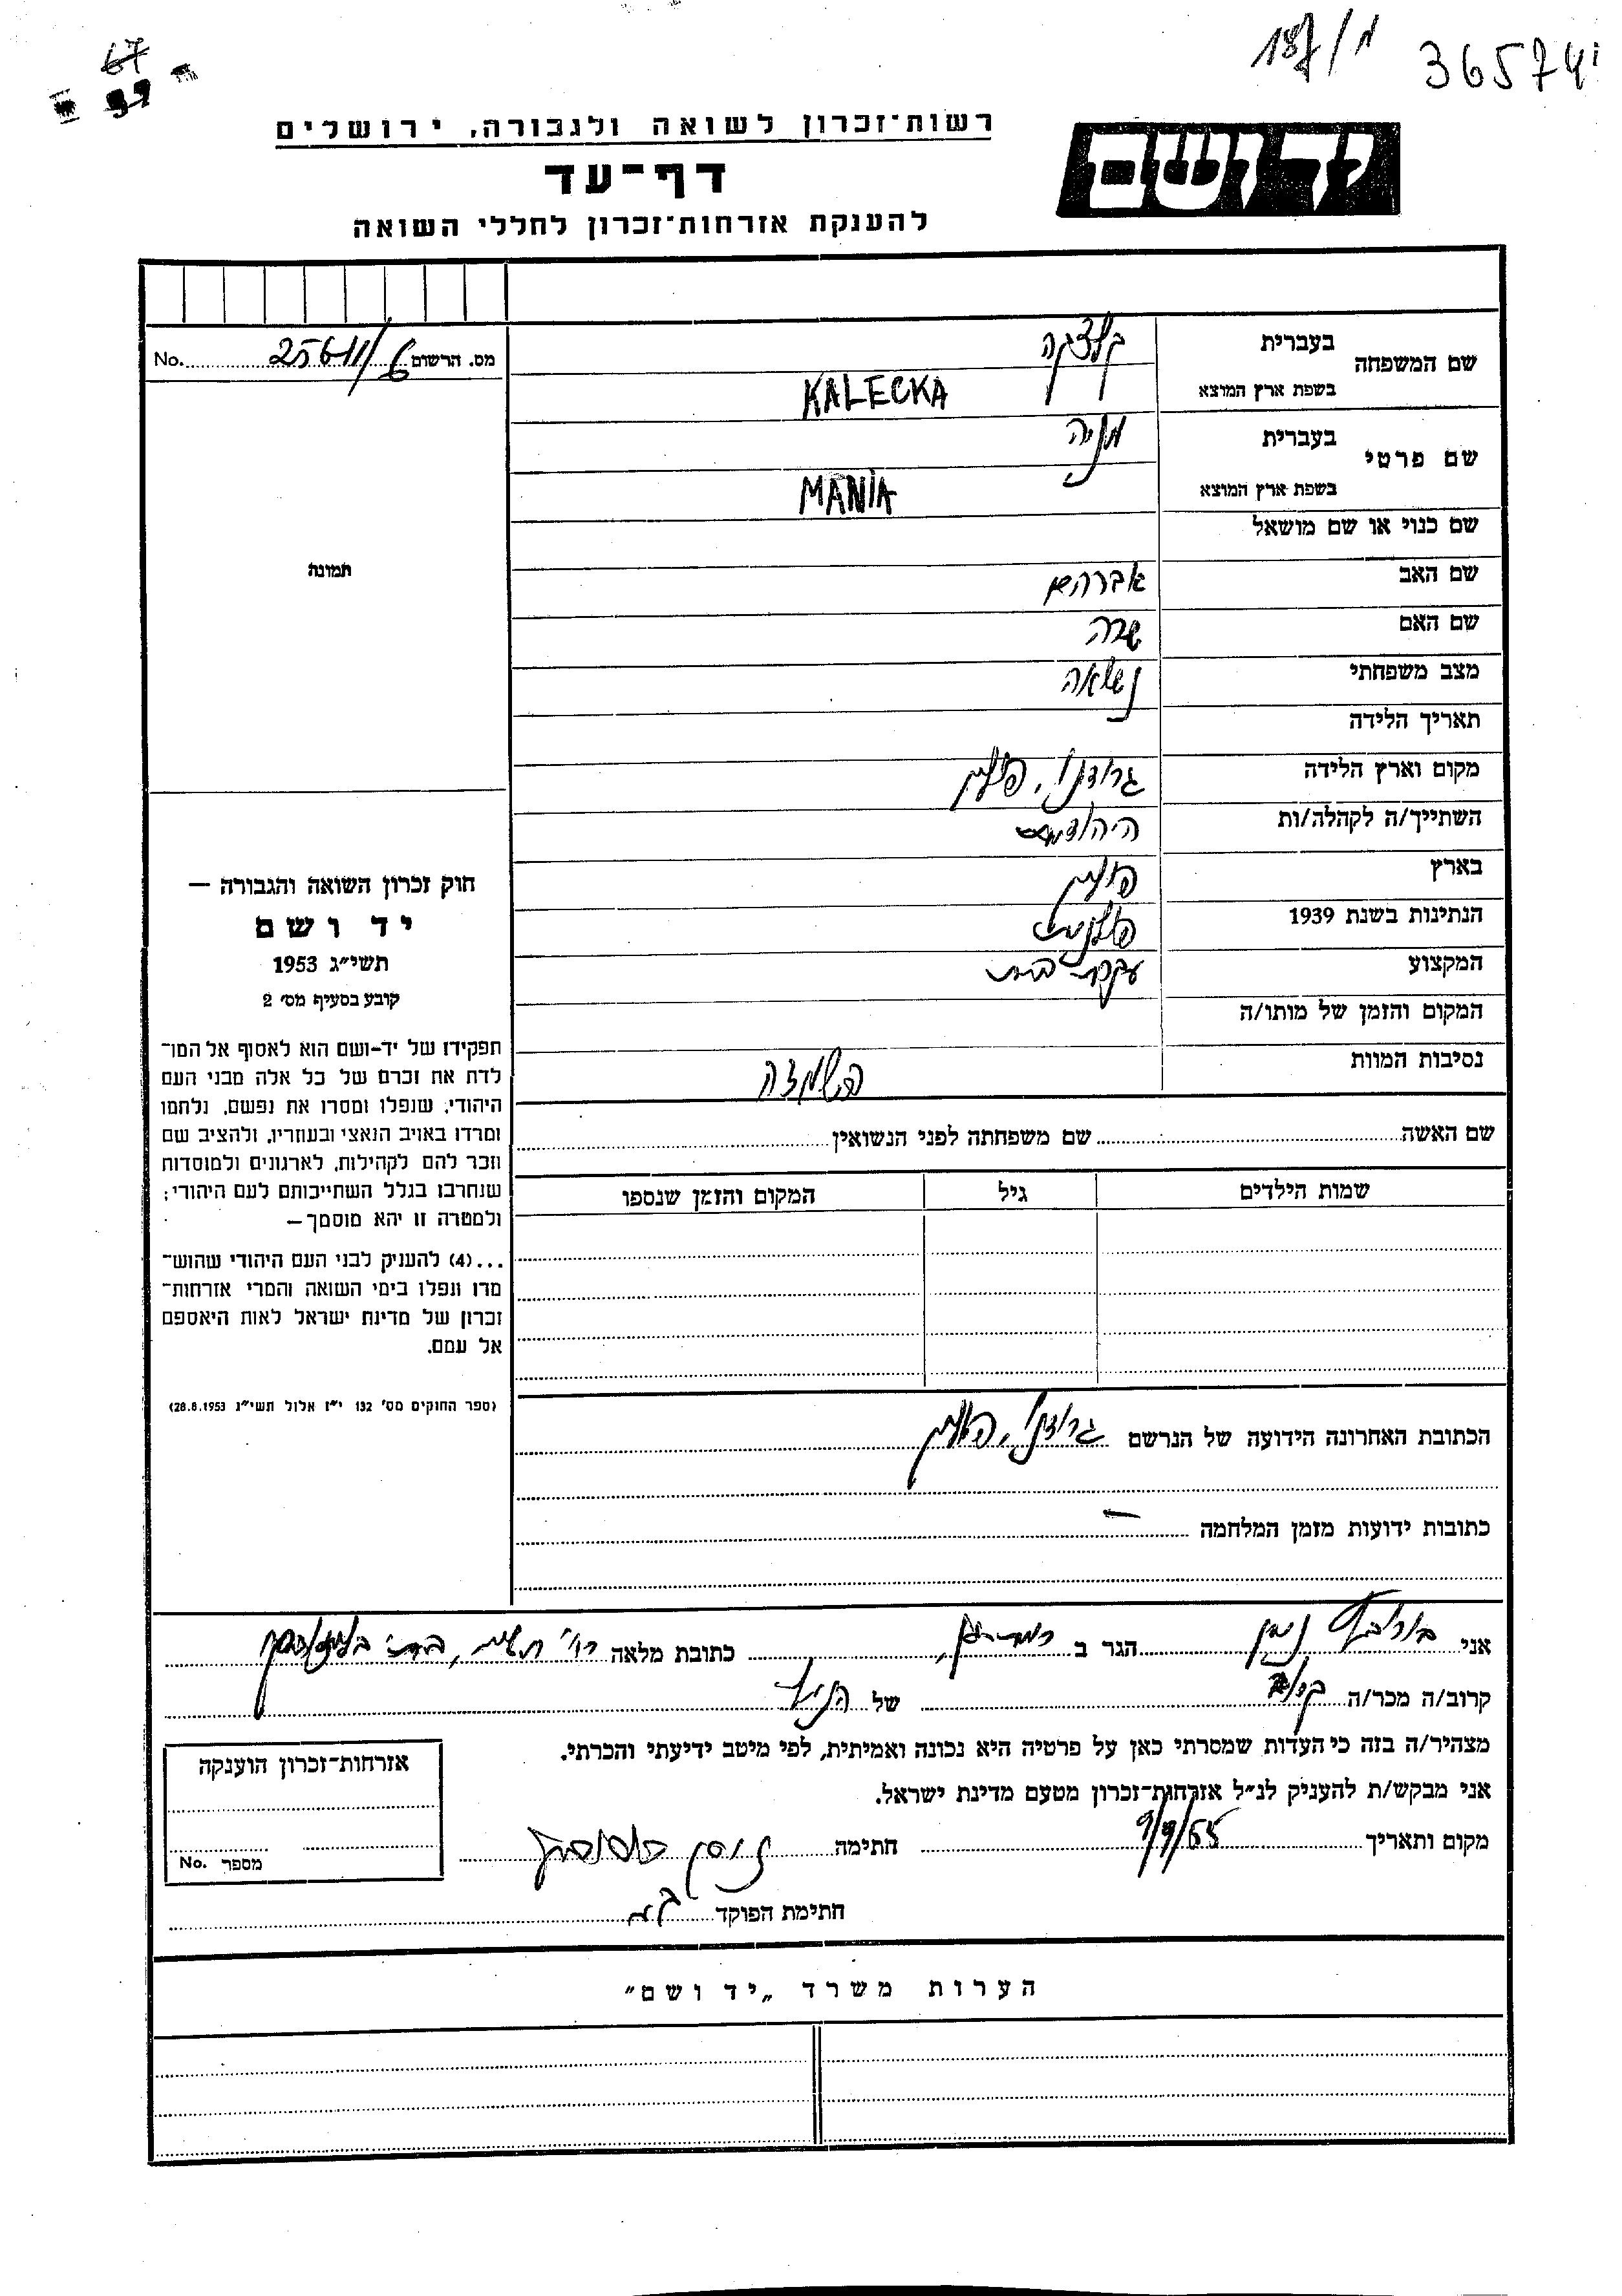 187/מ 36574
67
99
רשות־זכרון לשואה ולגבורה, ירושלים
דף־עד
להענקת אזרחות־זכרון לחללי השואה
ידושם
מס. הרשום 25611/6 No.
שם המשפחה
בעברית קלצקה
בשפת ארץ המוצא KALECKA
שם פרטי
בעברית מניה
בשפת ארץ המוצא MANIA
שם כנוי או שם מושאל
שם האב אברהם
שם האם שרה
מצב משפחתי נשואה
תאריך הלידה
מקום וארץ הלידה גרודנו, פולין
השתייך/ה לקהלה/ות היהודית
בארץ פולין
הנתינות בשנת 1939 פולנית
המקצוע עקרת בית
המקום והזמן של מותו/ה
נסיבות המוות השמדה
תמונה
חוק זכרון השואה והגבורה —
יד ושם
תשי״ג 1953
קובע בסעיף מס׳ 2
תפקידו של יד-ושם הוא לאסוף אל המו־
לדת את זכרם של כל אלה מבני העם
היהודי, שנפלו ומסרו את נפשם, נלחמו
ומרדו באויב הנאצי ובעוזריו, ולהציב שם
וזכר להם לקהילות, לארגונים ולמוסדות
שנחרבו בגלל השתייכותם לעם היהודי;
ולמטרה זו יהא מוסמך—
...(4) להעניק לבני העם היהודי שהוש־
מדו ונפלו בימי השואה והמרי אזרחות־
זכרון של מדינת ישראל לאות היאספם
אל עמם.
(ספר החוקים מס׳ 132 י״ז אלול תשי״ג 28.8.1953)
שם האשה שם משפחתה לפני הנשואין
שמות הילדים גיל המקום והזמן שנספו
הכתובת האחרונה הידועה של הנרשם גרודנו, פולין
כתובות ידועות מזמן המלחמה —
אני ניסן הגר ב כתובת מלאה
קרוב/ה מכר/ה קרוב של הניל
מצהיר/ה בזה כי העדות שמסרתי כאן על פרטיה היא נכונה ואמיתית, לפי מיטב ידיעתי והכרתי.
אני מבקש/ת להעניק לנ״ל אזרחות־זכרון מטעם מדינת ישראל.
מקום ותאריך 9/9/55 חתימה ניסן
חתימת הפוקד
אזרחות־זכרון הוענקה
מספר No.
הערות משרד „יד ושם״